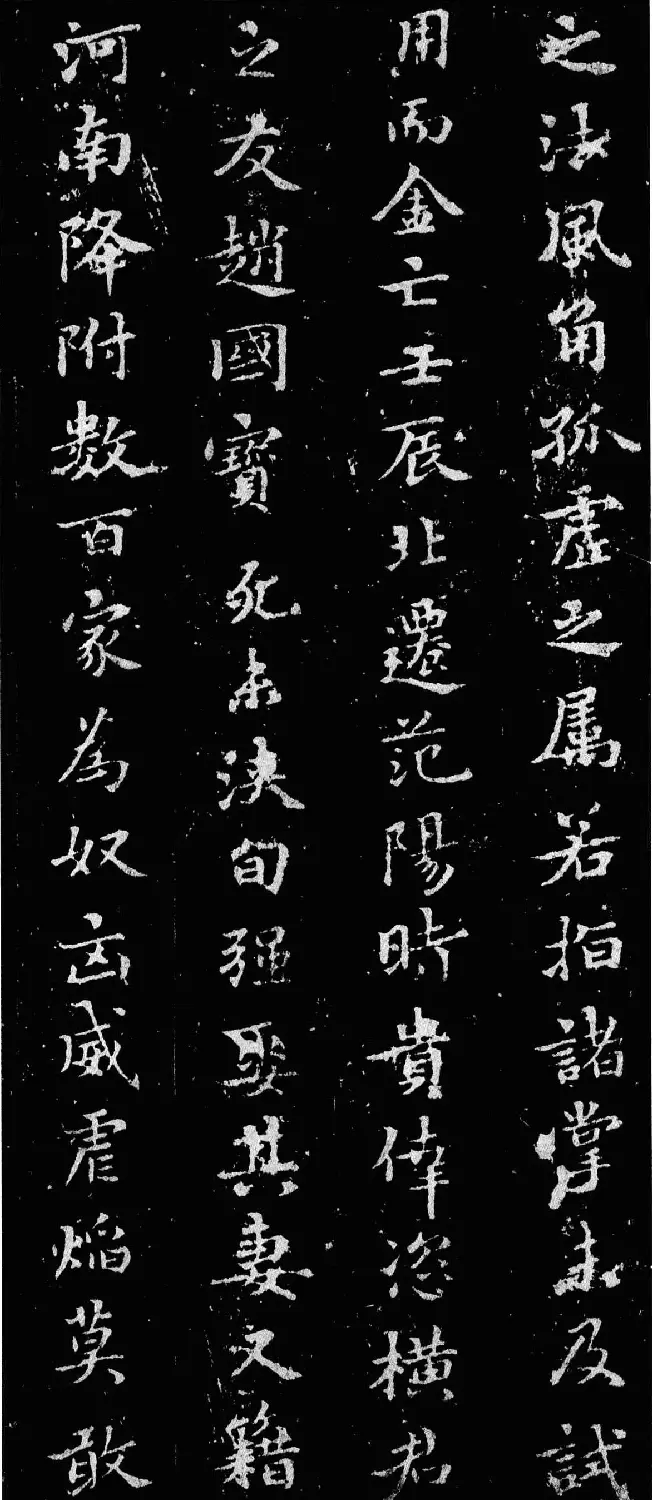 之法風角孤虛之属若指諸掌未及試
用而金亡壬辰北遷范陽時貴倖恣横君
之友趙國寶死未浹旬强娶其妻又籍
河南降附数百家為奴凶威虐焰莫敢